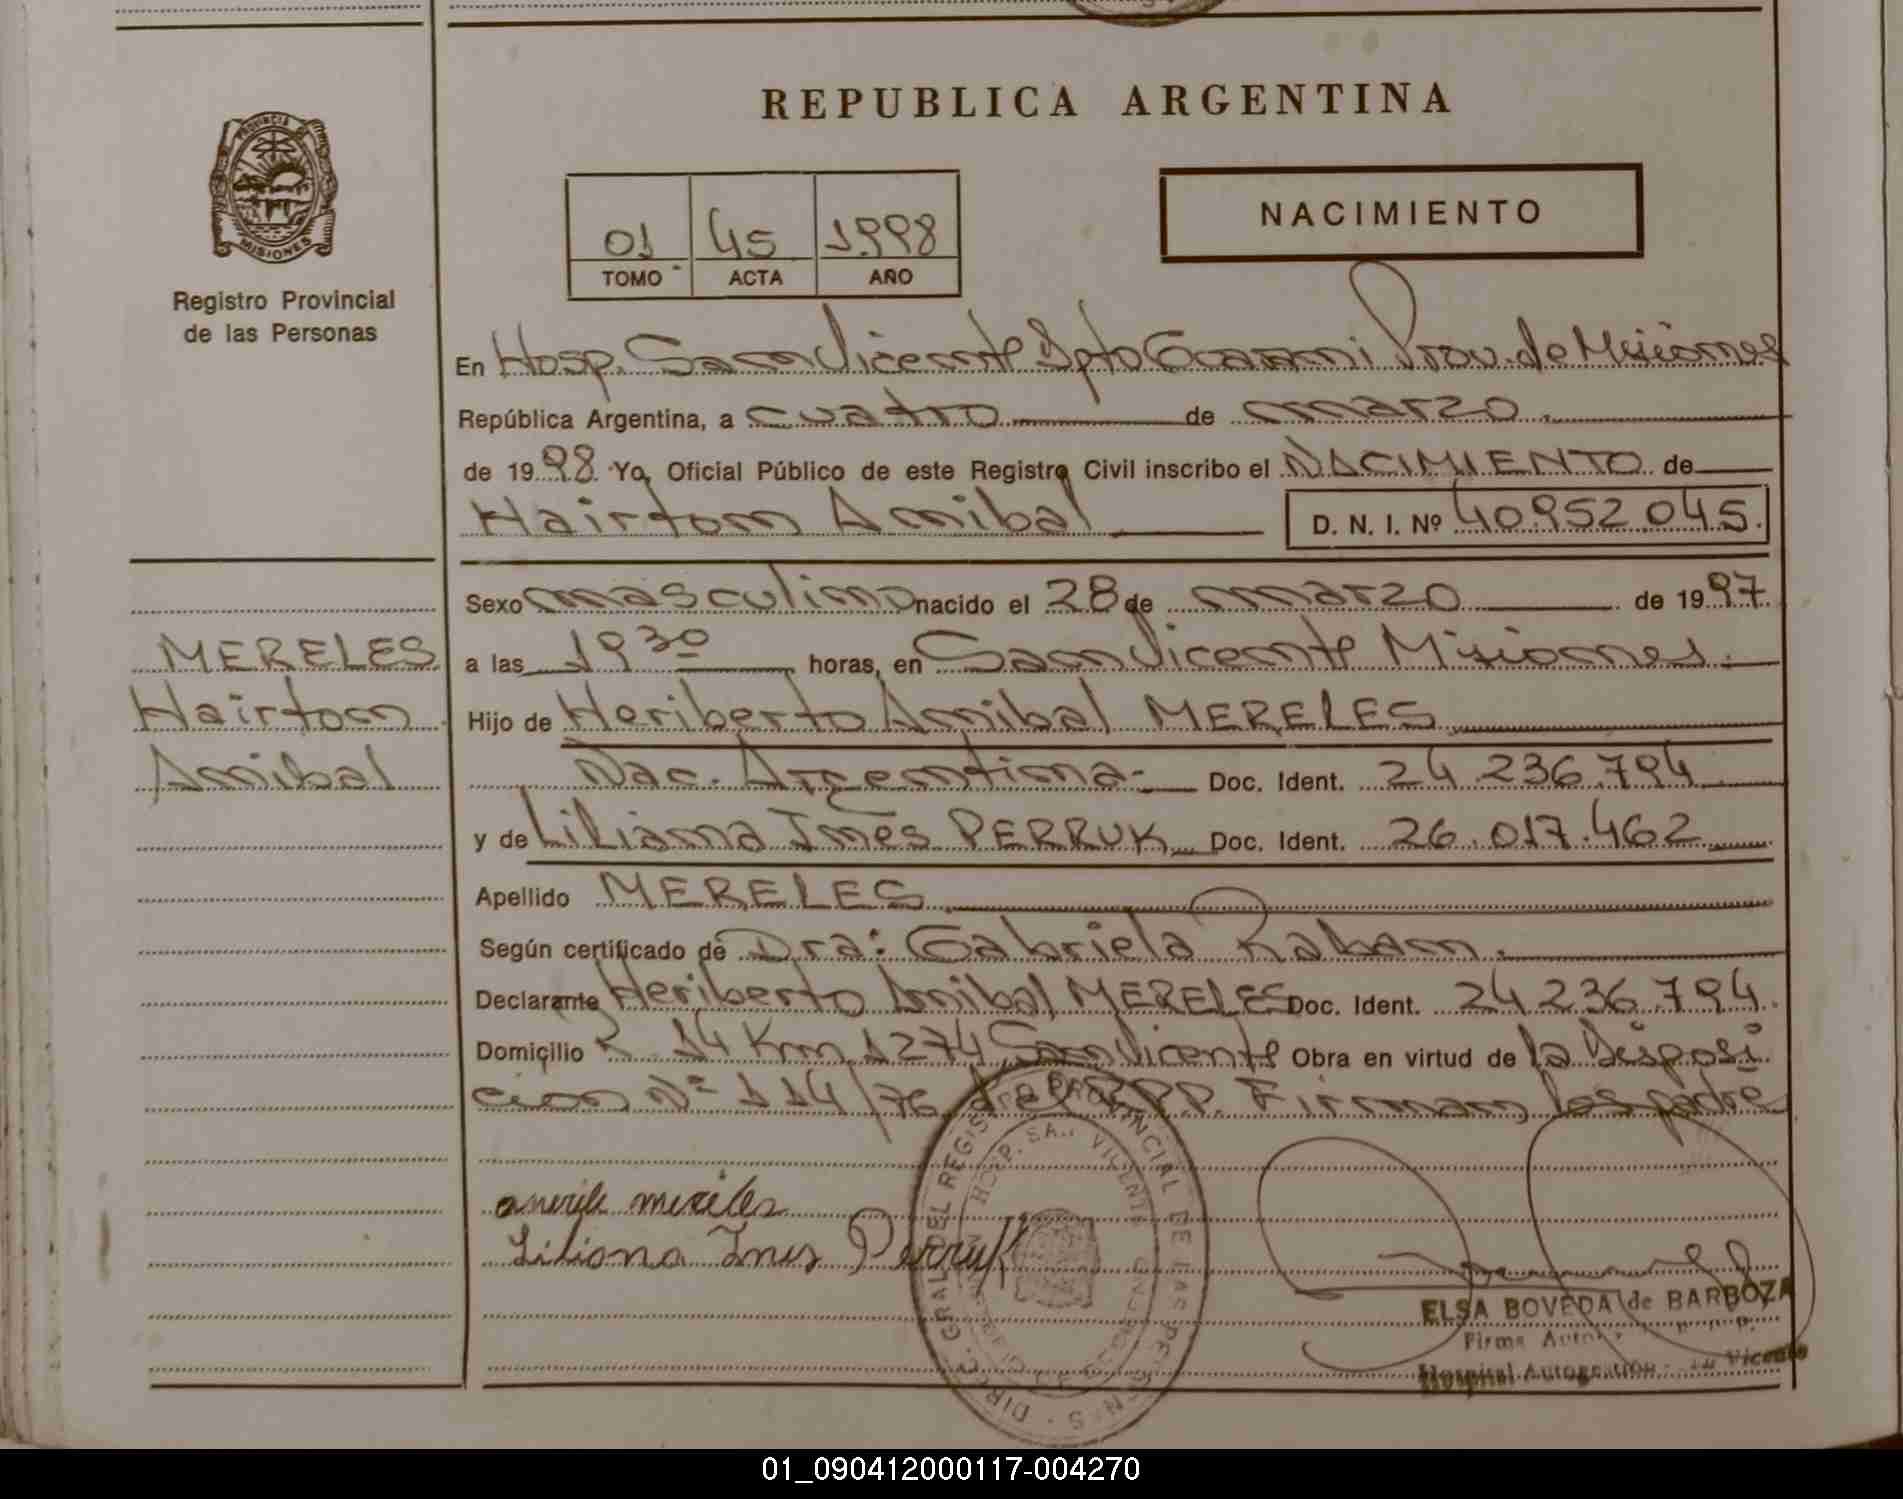 REPUBLICA ARGENTINA
PROVINCIA DE MISIONES
Registro Provincial
de las Personas
01 45 1998
TOMO ACTA AÑO
NACIMIENTO
En Hosp. San Vicente Dpto Guarani Prov. de Misiones
República Argentina, a cuatro de marzo
de 1998 Yo, Oficial Público de este Registro Civil inscribo el NACIMIENTO de
Hairton Anibal D. N. I. Nº 40952045.
Sexo masculino nacido el 28 de marzo de 1997
a las 19 30 horas, en San Vicente Misiones.
Hijo de Heriberto Anibal MERELES
Nac. Argentina- Doc. Ident. 24.236.794
y de Liliana Inés PERRUK Doc. Ident. 26.017.462
Apellido MERELES
Según certificado de Dra: Gabriela Raban.
Declarante Heriberto Anibal MERELES Doc. Ident. 24236.794.
Domicilio R 14 Km 1274 San Vicente Obra en virtud de la Disposi
cion Nº 114/76 del RPP. Firman los padre
MERELES
Hairton
Anibal
mereles
Liliana Ines Perruk
DIRC. GRAL DEL REGIS PROVINCIAL DE LAS PERSONAS
HOSP. SAN VICENTE
ELSA BOVEDA de BARBOZA
Firma
Hospital Autogestion Vicente
01_090412000117-004270